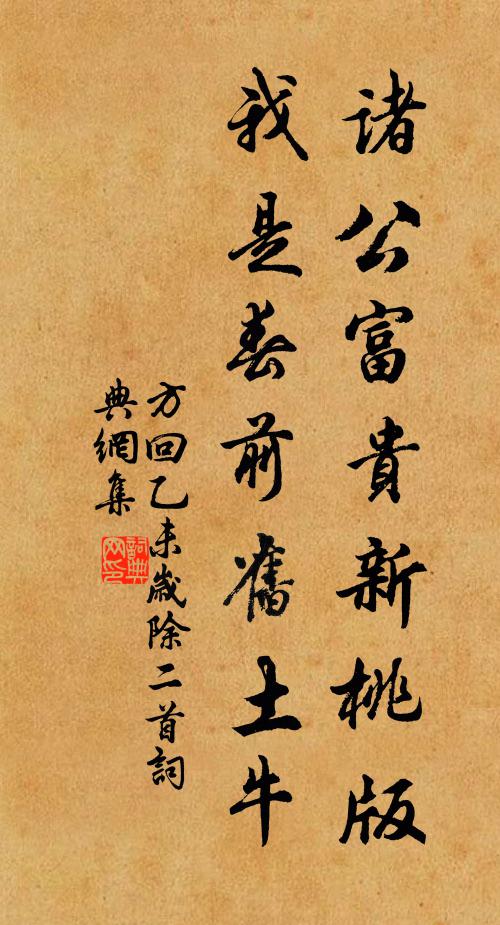 諸公富貴新桃版
我是春前舊土牛
方回乙未歲除二首詞
典網集
詞典
网印